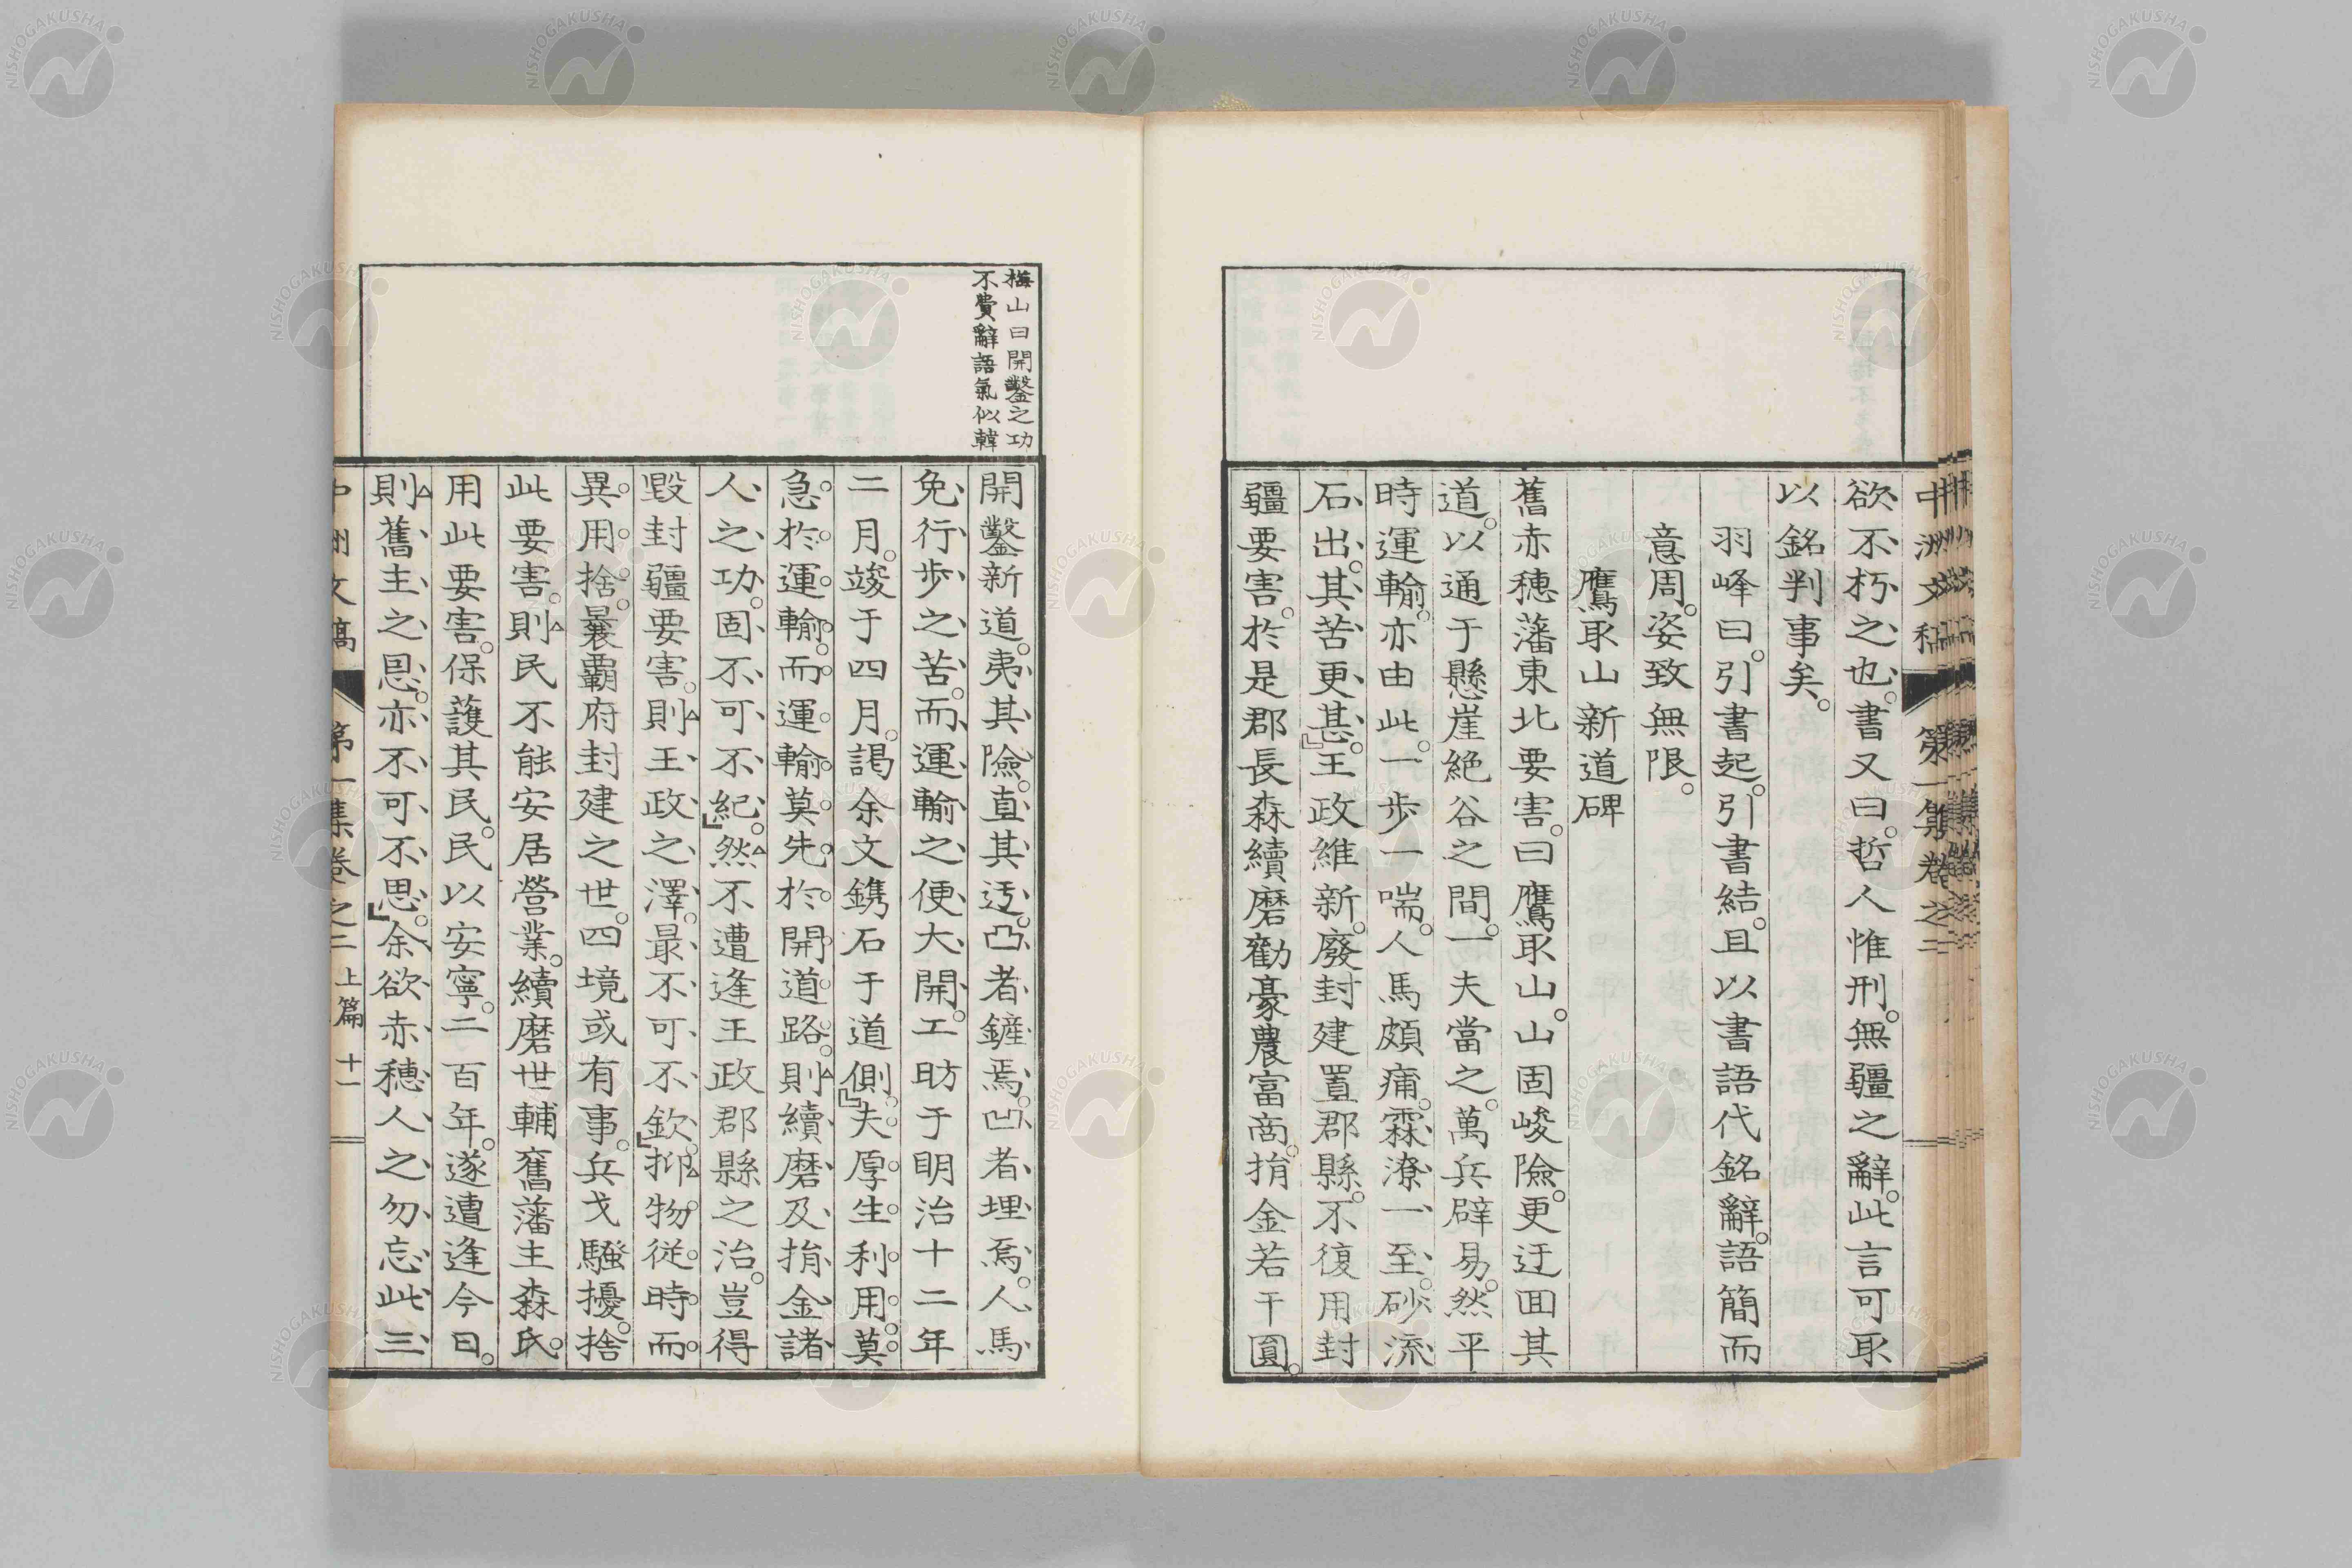 中洲文稿 第一集卷之二
欲不朽之也。書又曰。哲人惟刑。無疆之辭。此言可取
以銘判事矣。
羽峰曰。引書起。引書結。且以書語代銘辭。語簡而
意周。姿致無限。
鷹取山新道碑
舊赤穗藩東北要害。曰鷹取山。山固峻險。更迂回其
道。以通于懸崖絕谷之間。一夫當之。萬兵辟易。然平
時運輸。亦由此。一步一喘。人馬頗痡。霖潦一至。砂流
石出。其苦更甚。王政維新。廢封建置郡縣。不復用封
疆要害。於是郡長森續磨勸豪農富商。捐金若干圓。
梅山曰開鑿之功
不費辭語氣似韓
開鑿新道。夷其險。直其迃。凸者鏟焉。凹者埋焉。人馬
免行步之苦。而運輸之便大開。工昉于明治十二年
二月。竣于四月。謁余文鐫石于道側。夫厚生利用。莫
急於運輸。而運輸莫先於開道路。則續磨及捐金諸
人之功。固不可不紀。然不遭逢王政郡縣之治。豈得
毀封疆要害。則王政之澤。最不可不欽。抑物從時而
異用捨。曩霸府封建之世。四境或有事。兵戈騷擾。捨
此要害。則民不能安居營業。續磨世輔舊藩主森氏。
用此要害。保護其民。民以安寧。二百年。遂遭逢今日。
則舊主之恩。亦不可不思。余欲赤穗人之勿忘此三
中洲文稿 第一集卷之二 上篇 十一
NISHOGAKUSHA